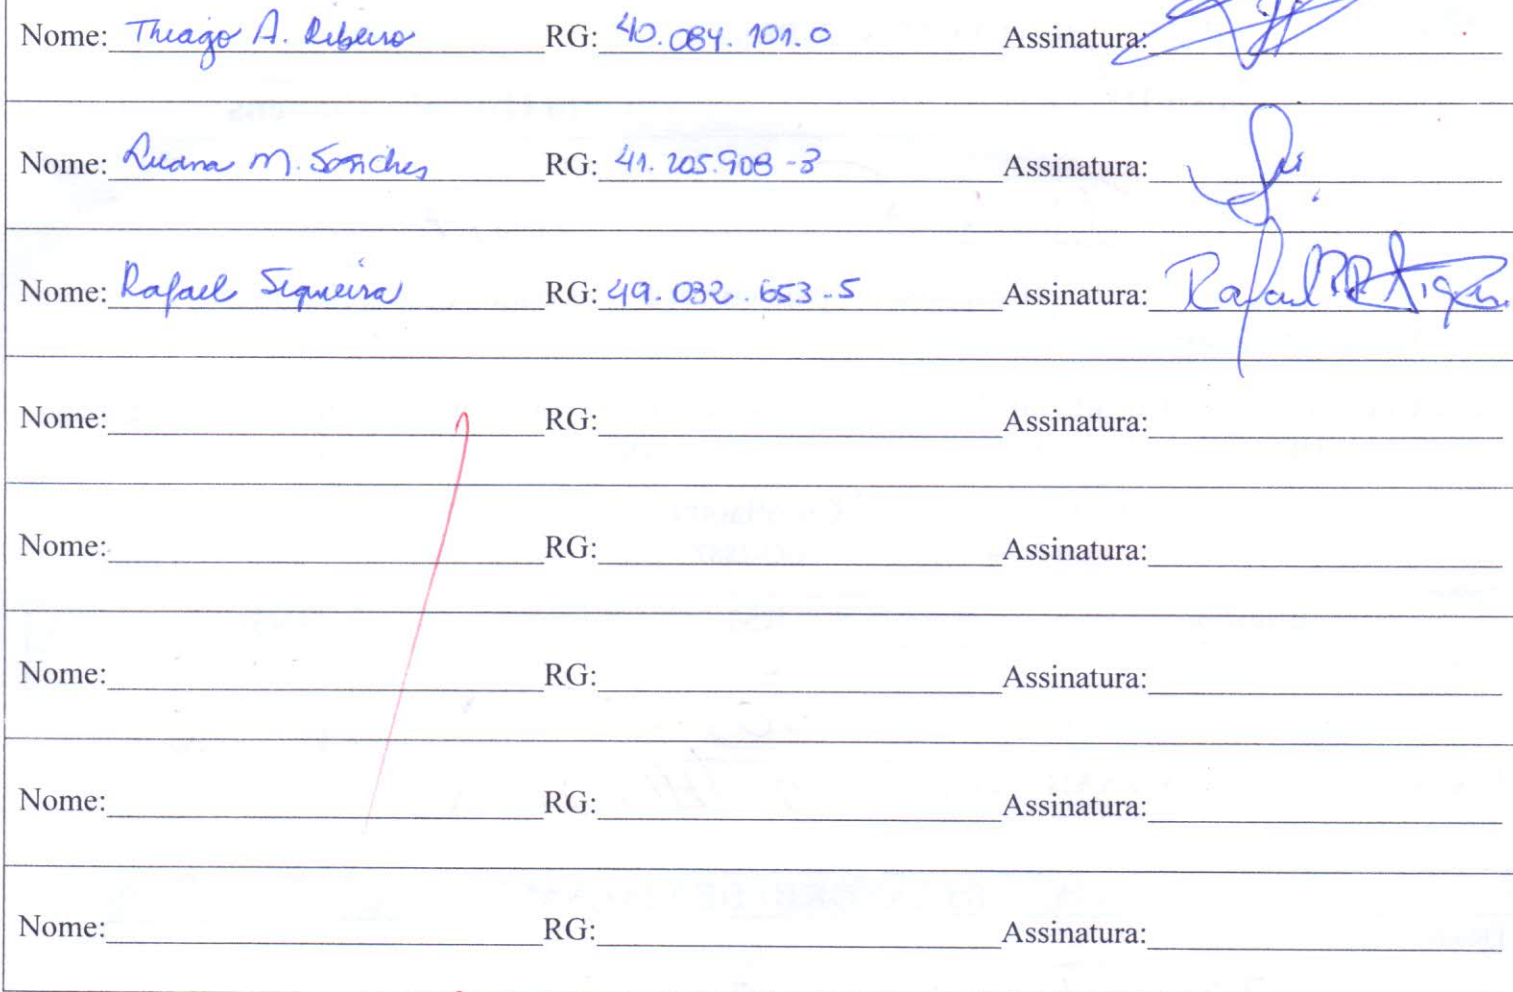 Nome: Thiago A. Ribeiro RG: 40.084.101.0 Assinatura:
Nome: Luana M. Sanches RG: 41.205.908-3 Assinatura:
Nome: Rafael Siqueira RG: 49.032.653-5 Assinatura: Rafael
Nome: RG: Assinatura:
Nome: RG: Assinatura:
Nome: RG: Assinatura:
Nome: RG: Assinatura:
Nome: RG: Assinatura: